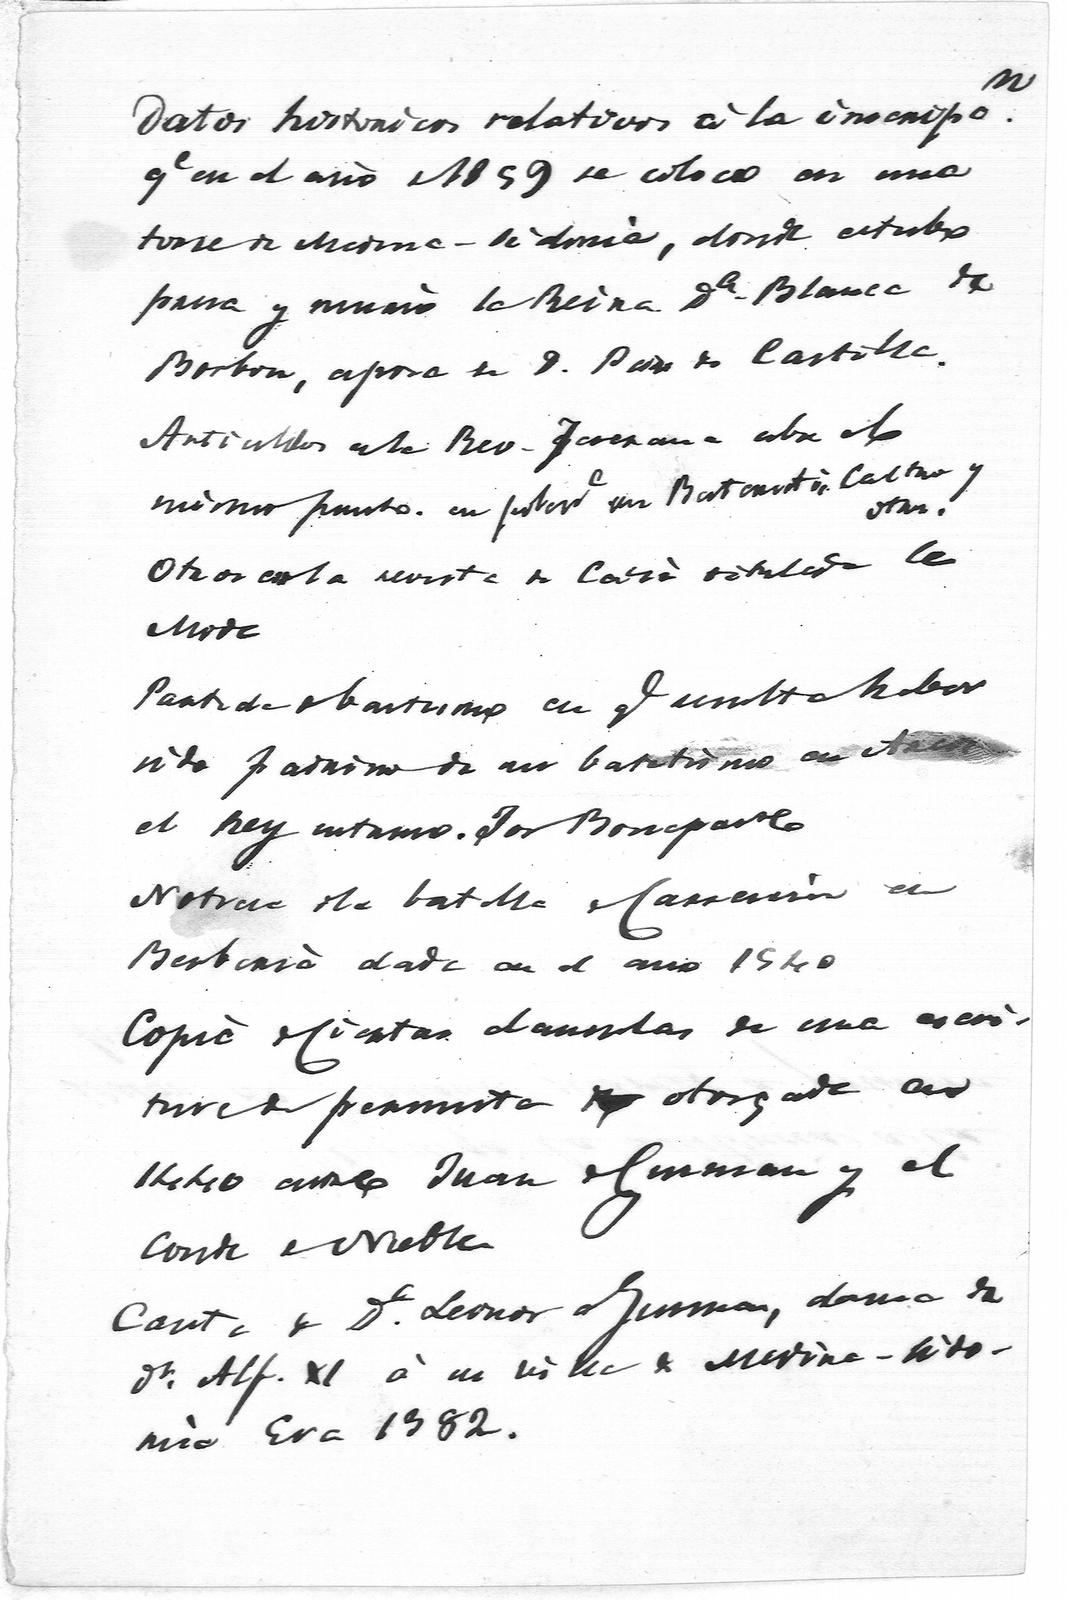 n
Datos historicos relativos á la inscripo.
qe en el año d 1859 se coloco en una
torre de Medina-Sidonia, donde estubo
presa y murió la Reina Da. Blanca de
Borbon, esposa de D. Pedro de Castilla.
Articulos de la Rev. Jerezana sobre el
mismo punto. en Castro y
otros.
Otro en la revista de Cadiz titulada La
Moda
Partida d bautismo en q resulta haber
sido padrino de un bautismo en
el Rey intruso. Jose Bonaparte
Noticia de la batalla d en
Berberia dada en el año 1540
Copia d Ciertas clausulas de una escri-
tura de permuta otorgada en
1440 entre Juan d Gusman y el
Conde d Niebla
Carta de Da. Leonor d Gusman, dama de
Dn. Alf. XI á su villa de Medina-Sido-
nia Era 1382.